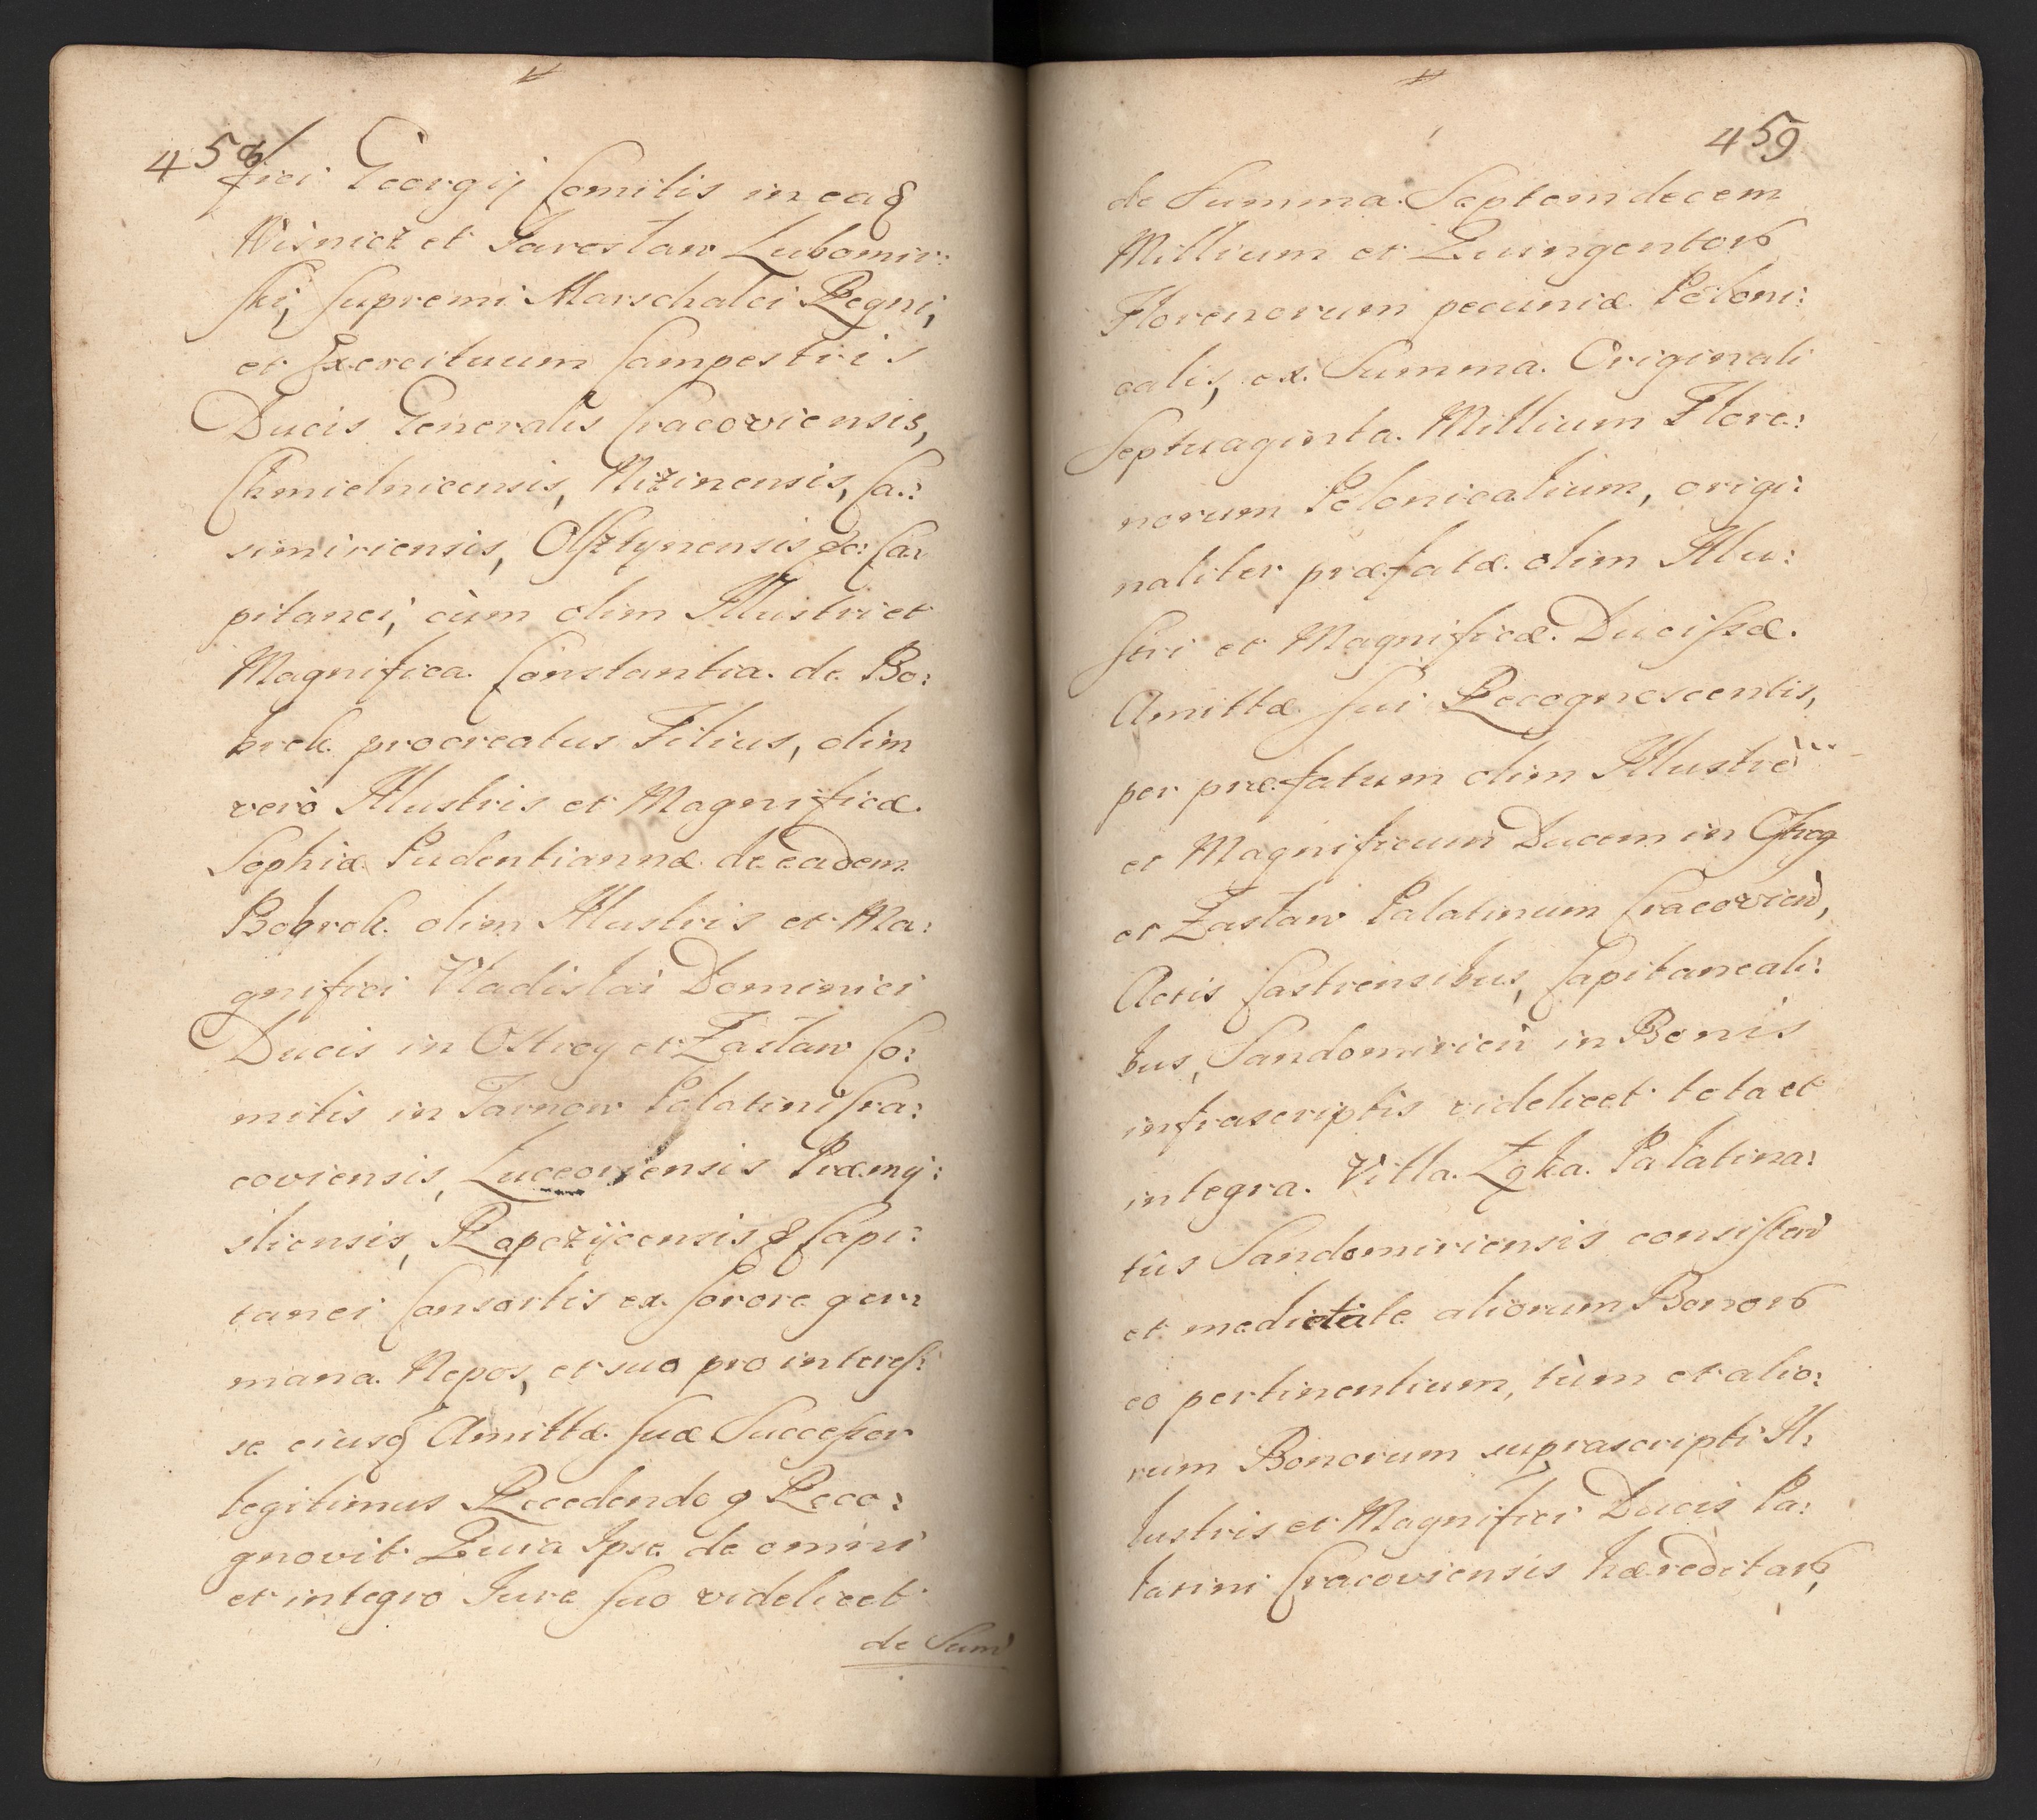 458
fici Georgij Comitis in eaq
Wisnicz et Jarostaw Lubomir:
skij, Supremi Marschalci Regni,
et Exercituum Campestris
Ducis Generalis Cracoviensis,
Chmielnicensis, Nizinensis, Ca:
simiriensis, Olsztynensis &c: Ca:
pitanei, cùm olim Illustri et
Magnifica Constantia de Bo:
brek procreatus Filius, olim
verò Illustris et Magnificæ
Sophiæ Pudentiannæ de eadem
Bobrek olim Illustris et Ma:
gnifici Vladislai Dominici
Ducis in Ostrog et Zastaw Co:
mitis in Tarnow Palatini Cra:
coviensis, Luceoriensis Præmy:
sliensis, Ropczÿcensis & Capi:
tanei Consortis ex Sorore ger:
mana Nepos, et suo pro interes:
se eiusq Amittæ suæ Successor
legitimus Recedendo q Reco:
gnovit Quia Ipse de omni
et integro Jure suo videlicet
de Sum
459
de Summa Septemdecem
Millium et Quingentor
Florenorum pecuniæ Poloni:
calis, ex Summa Originali
Septuaginta Millium Flore:
norum Polonicalium, origi:
naliter præfatæ olim Illu:
stri et Magnificæ Ducissæ
Amittæ sui Recognoscentis,
per præfatum olim Illustrè
et Magnificum Ducem in Ostrog
et Zastaw Palatinum Cracovien,
Actis Castrensibus, Capitaneali:
bus, Sandomirien in Bonis
infrascriptis videlicet tota et
integra Villa Zgka Palatina:
tûs Sandomiriensis consisten
et medietate aliorum Bonor
eo pertinentium, tùm et alio:
rum Bonorum suprascripti Il:
lustris et Magnifici Ducis Pa:
latini Cracoviensis hæreditar,